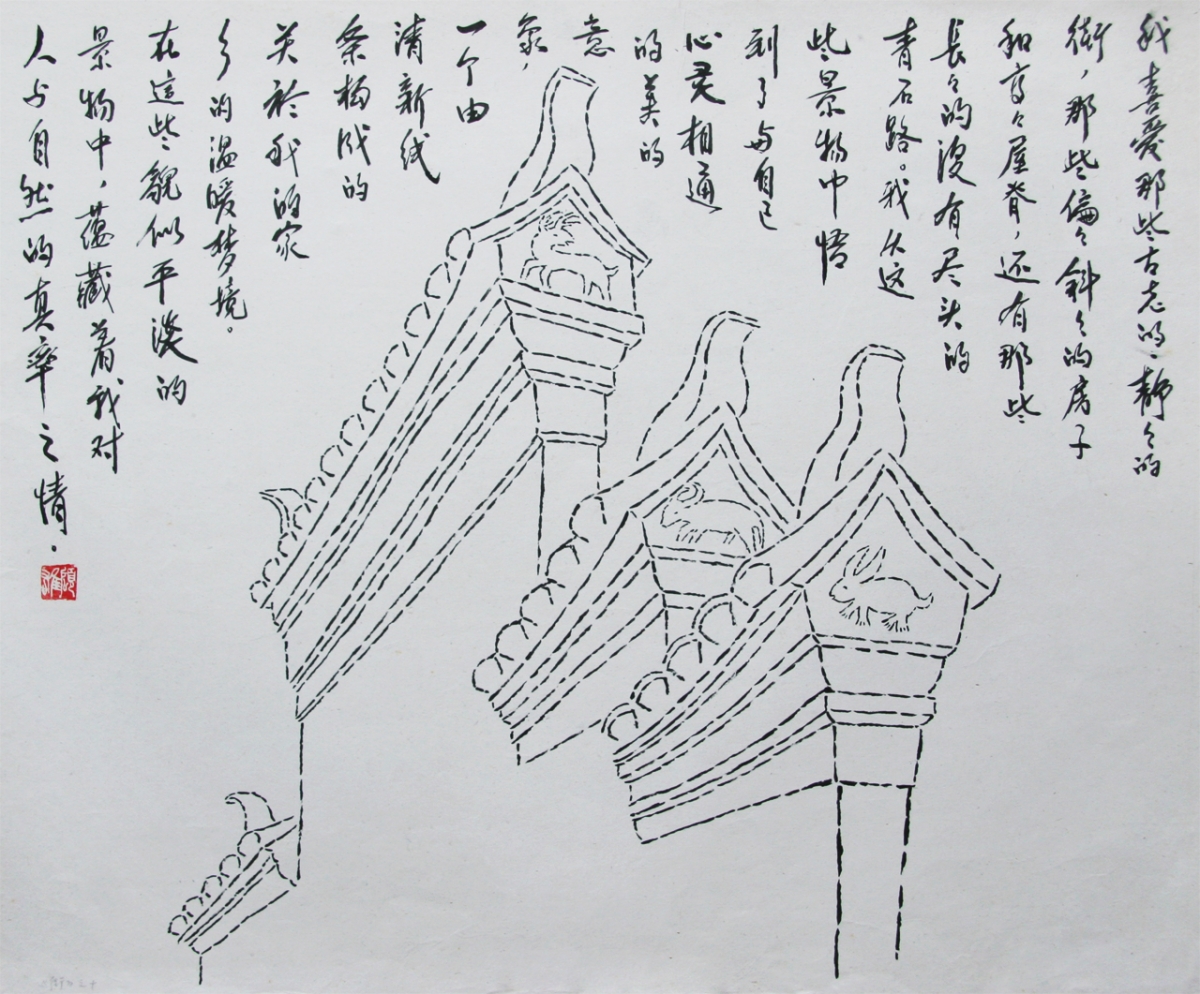 我喜愛那些古老的、静々的
街，那些偏々斜々的房子
和高々屋脊，还有那些
長々的没有尽头的
青石路。我从这
些景物中悟
到了与自己
心灵相通
的美的
意
象，
一个由
清新线
条构成的
关於我的家
乡的温暖梦境。
在這些貌似平淡的
景物中，蕴藏着我对
人与自然的真率之情．